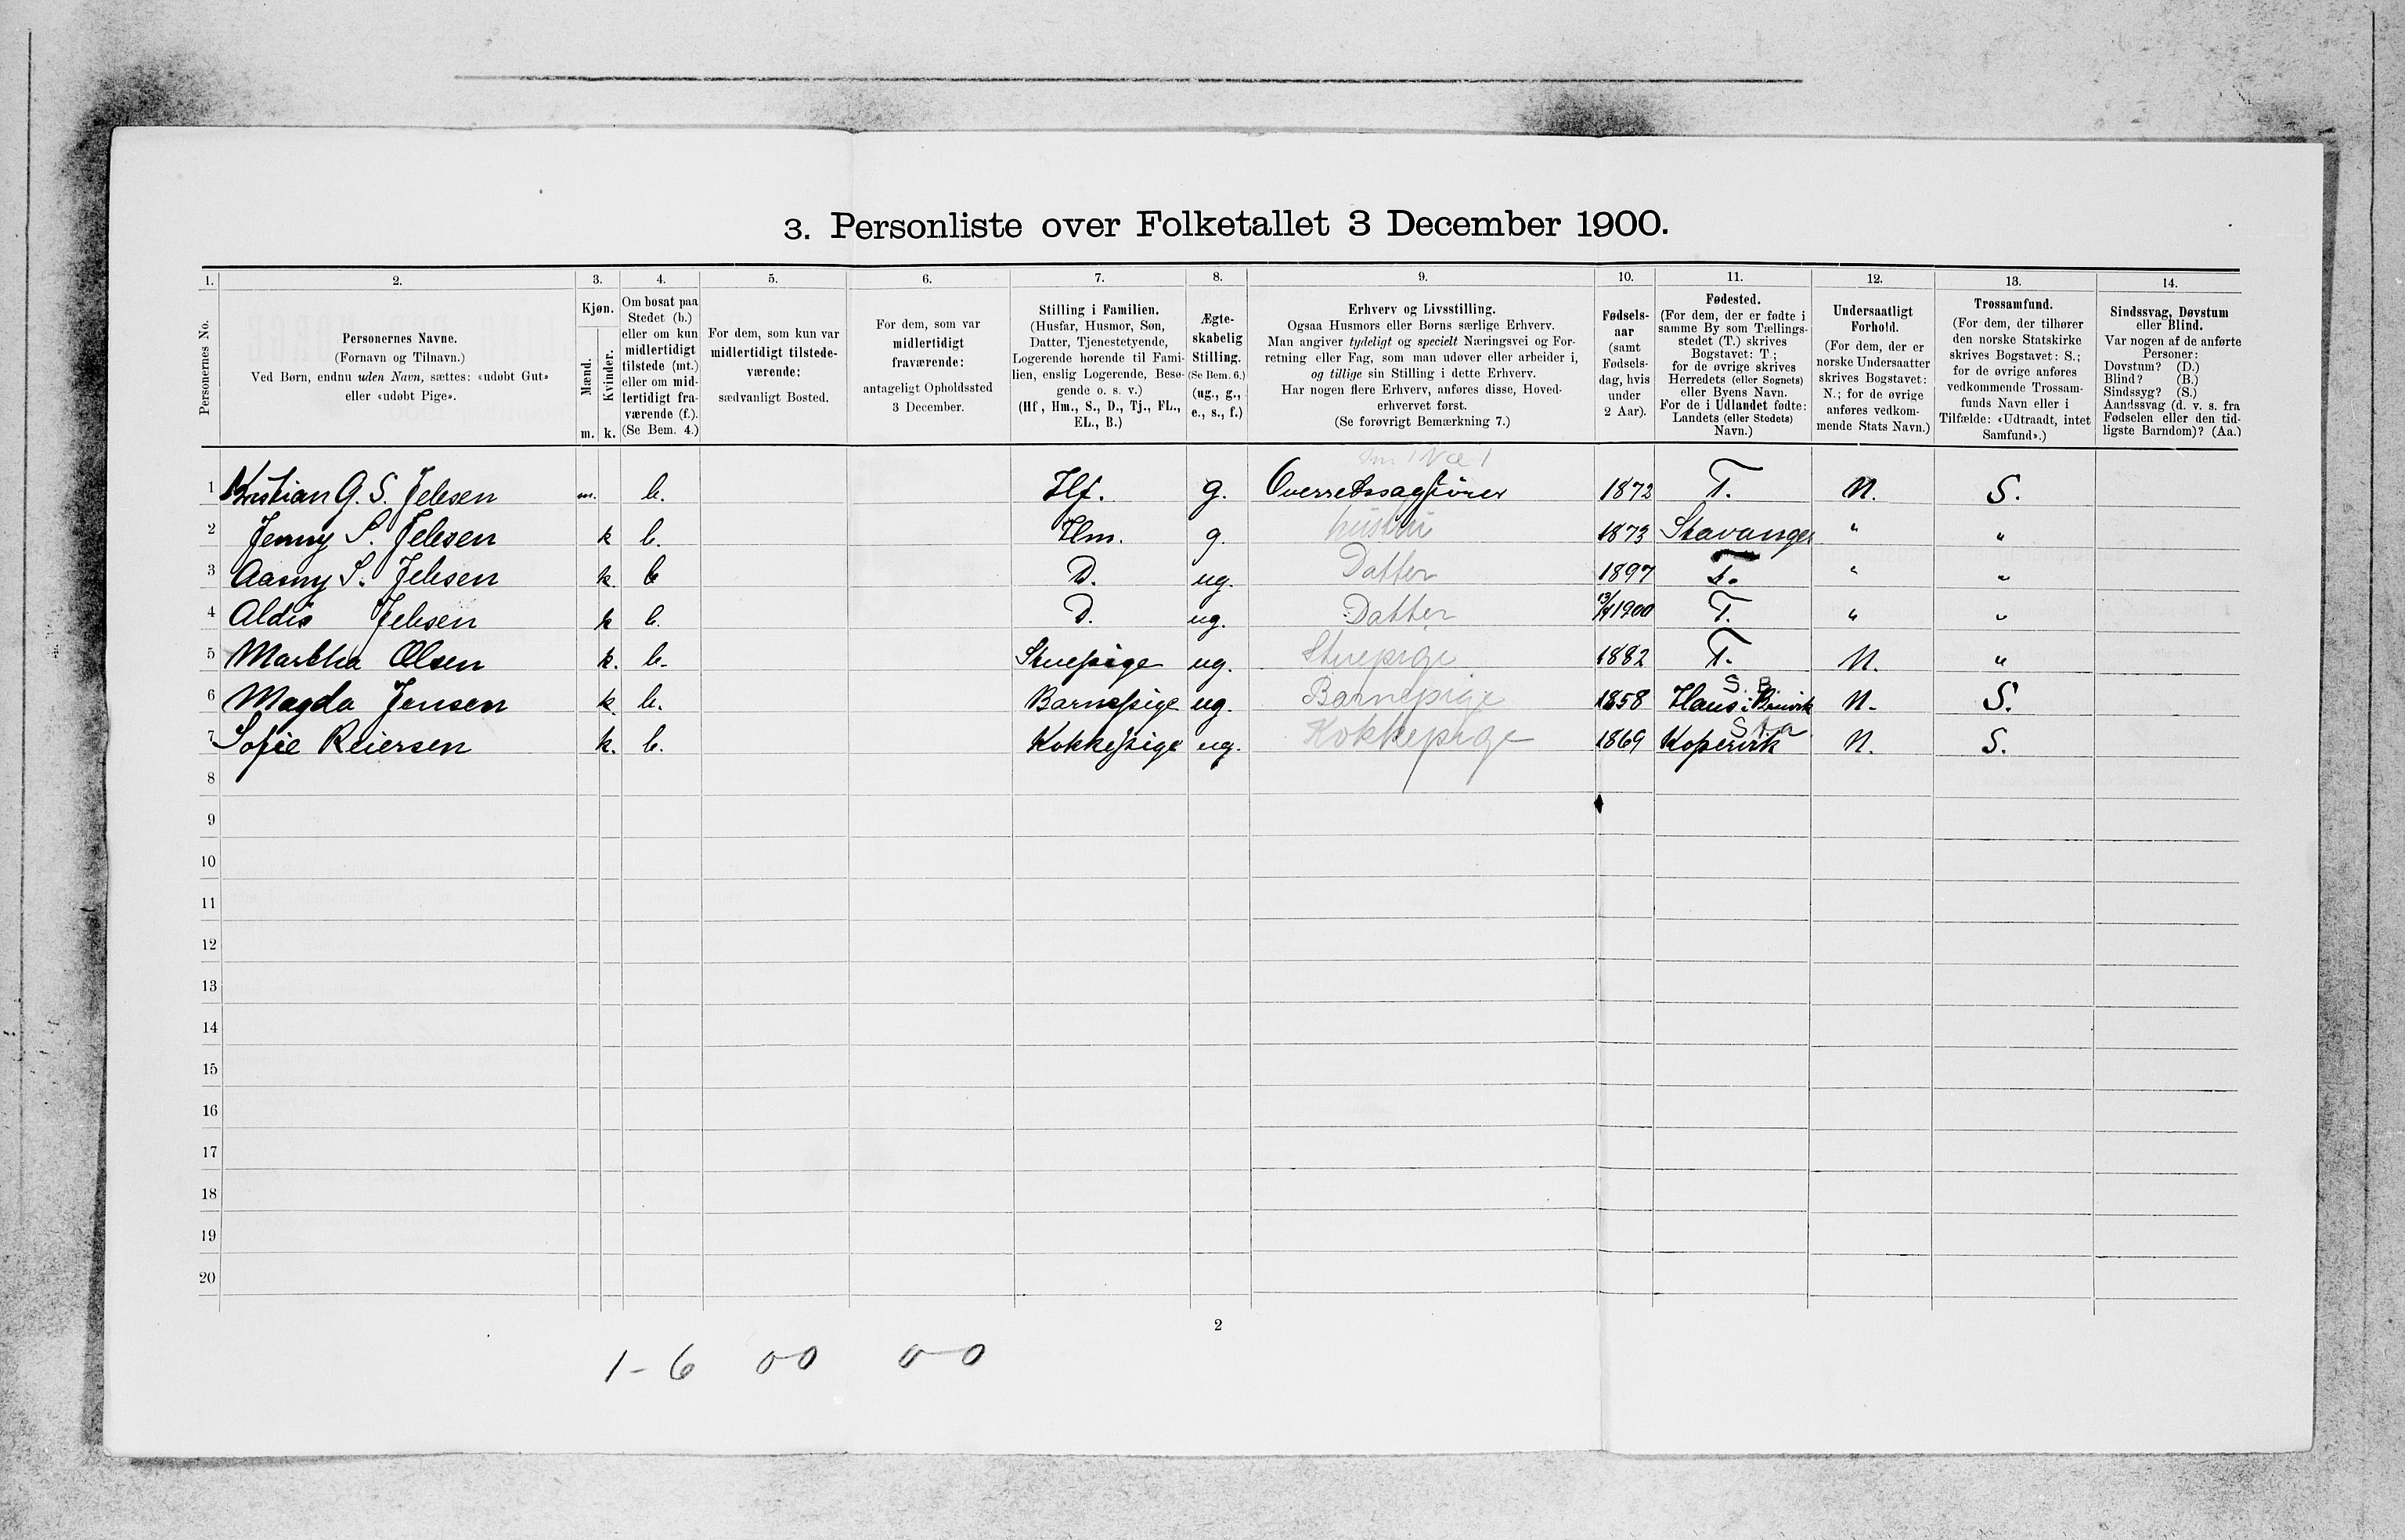 3. Personliste over Folketallet 3 December 1900.
1. 2. 3. 4. 5. 6. 7. 8. 9. 10. 11. 12. 13. 14.
Personernes No.
Personernes Navne.
(Fornavn og Tilnavn.)
Ved Børn, endnu uden Navn, sættes: «udøbt Gut»
eller «udøbt Pige».
Kjøn.
Mænd.
Kvinder.
m. k.
Om bosat paa
Stedet (b.)
eller om kun
midlertidigt
tilstede (mt.)
eller om mid-
lertidigt fra-
værende (f.).
(Se Bem. 4.)
For dem, som kun var
midlertidigt tilstede-
værende:
sædvanligt Bosted.
For dem, som var
midlertidigt
fraværende:
antageligt Opholdssted
3 December.
Stilling i Familien.
(Husfar, Husmor, Søn,
Datter, Tjenestetyende,
Logerende hørende til Fami-
lien, enslig Logerende, Besø-
gende o. s. v.)
(Hf., Hm., S., D., Tj., FL.,
EL., B.)
Ægte-
skabelig
Stilling.
(Se Bem. 6.)
(ug., g.,
e., s., f.)
Erhverv og Livsstilling.
Ogsaa Husmors eller Børns særlige Erhverv.
Man angiver tydeligt og specielt Næringsvei og For-
retning eller Fag, som man udøver eller arbeider i,
og tillige sin Stilling i dette Erhverv.
Har nogen flere Erhverv, anføres disse, Hoved-
erhvervet først.
(Se forøvrigt Bemærkning 7.)
Fødsels-
aar
(samt
Fødsels-
dag, hvis
under
2 Aar).
Fødested.
(For dem, der er fødte i
samme By som Tællings-
stedet (T.) skrives
Bogstavet: T.;
for de øvrige skrives
Herredets (eller Sognets)
eller Byens Navn.
For de i Udlandet fødte:
Landets (eller Stedets)
Navn.)
Undersaatligt
Forhold.
(For dem, der er
norske Undersaatter
skrives Bogstavet:
N.; for de øvrige
anføres vedkom-
mende Stats Navn.)
Trossamfund.
(For dem, der tilhører
den norske Statskirke
skrives Bogstavet: S.;
for de øvrige anføres
vedkommende Trossam-
funds Navn eller i
Tilfælde: «Udtraadt, intet
Samfund».)
Sindssvag, Døvstum
eller Blind.
Var nogen af de anførte
Personer:
Døvstum? (D.)
Blind? (B.)
Sindssyg? (S.)
Aandssvag (d. v. s. fra
Fødselen eller den tid-
ligste Barndom)? (Aa.)
1 Kristian G. S. Jebsen m. b. Hf. g. Overretssagfører 1872 T. N. S.
2 Jenny S. Jebsen k b. Hm. g. hustru 1873 Stavanger " "
3 Aasny S. Jebsen k. b D. ug. Datter 1897 T. " "
4 Aldis Jebsen k b. D. ug. Datter 13/4 1900 T. " "
5 Martha Olsen k. b. Stuepige ug. Stuepige 1882 T. N. "
S. B.
6 Magda Jensen k. b. Barnepige ug. Barnepige 1858 Haus i N. S.
Sta
7 Sofie Reiersen k. b. Kokkepige ug. Kokkepige 1869 Kopervik N. S.
8
9
10
11
12
13
14
15
16
17
18
19
20
2
1-6 0-0 0-0